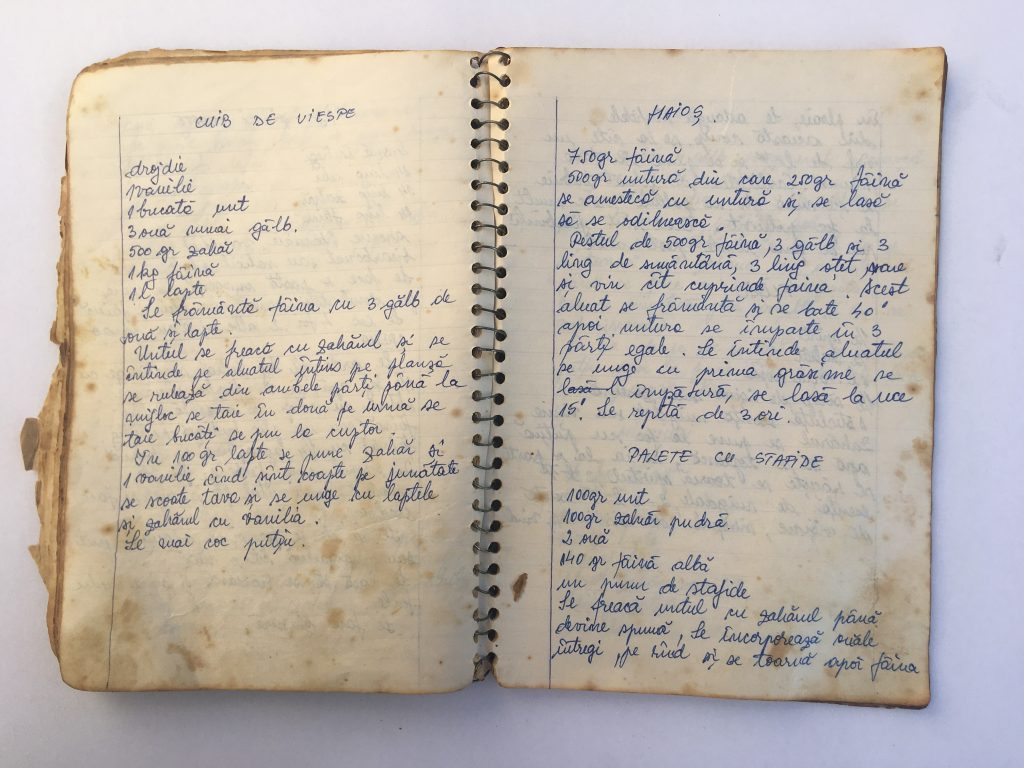 CUIB DE VIESPE
drojdie
1 vanilie
1 bucată unt
3 ouă numai gălb.
500 gr zahăr
1 kg făină
1 l lapte
Se frământă făina cu 3 gălb de
ouă și lapte
Untul se freacă cu zahărul și se
întinde pe aluatul întins pe planșă
se rulează din ambele părți până la
mijloc se taie în două pe urmă se
taie bucăți se pun la cuptor.
În 100 gr lapte se pune zahăr și
1 vanilie cînd sînt coapte pe jumătate
se scoate tava și se unge cu laptele
și zahărul cu vanilia.
Se mai coc puțin.
HAIOȘ
750gr făină
500gr untură din care 250gr făină
se amestică cu untură și se lasă
să se odihnească.
Restul de 500gr făină, 3 gălb și 3
ling de smântână, 3 ling oțet, sare
și vin cît cuprinde făina. Acest
aluat se frământă și se bate 40'
apoi untura se împarte în 3
părți egale. Se întinde aluatul
se unge cu prima grăsime se
lasă împătură, se lasă la rece
15'. Se repită de 3 ori.
PALETE CU STAFIDE
100gr unt
100gr zahăr pudră
2 ouă
140 gr făină albă
un pumn de stafide
Se freacă untul cu zahărul până
devine spumă, se încorporează ouăle
întregi, pe rînd și se toarnă apoi făina